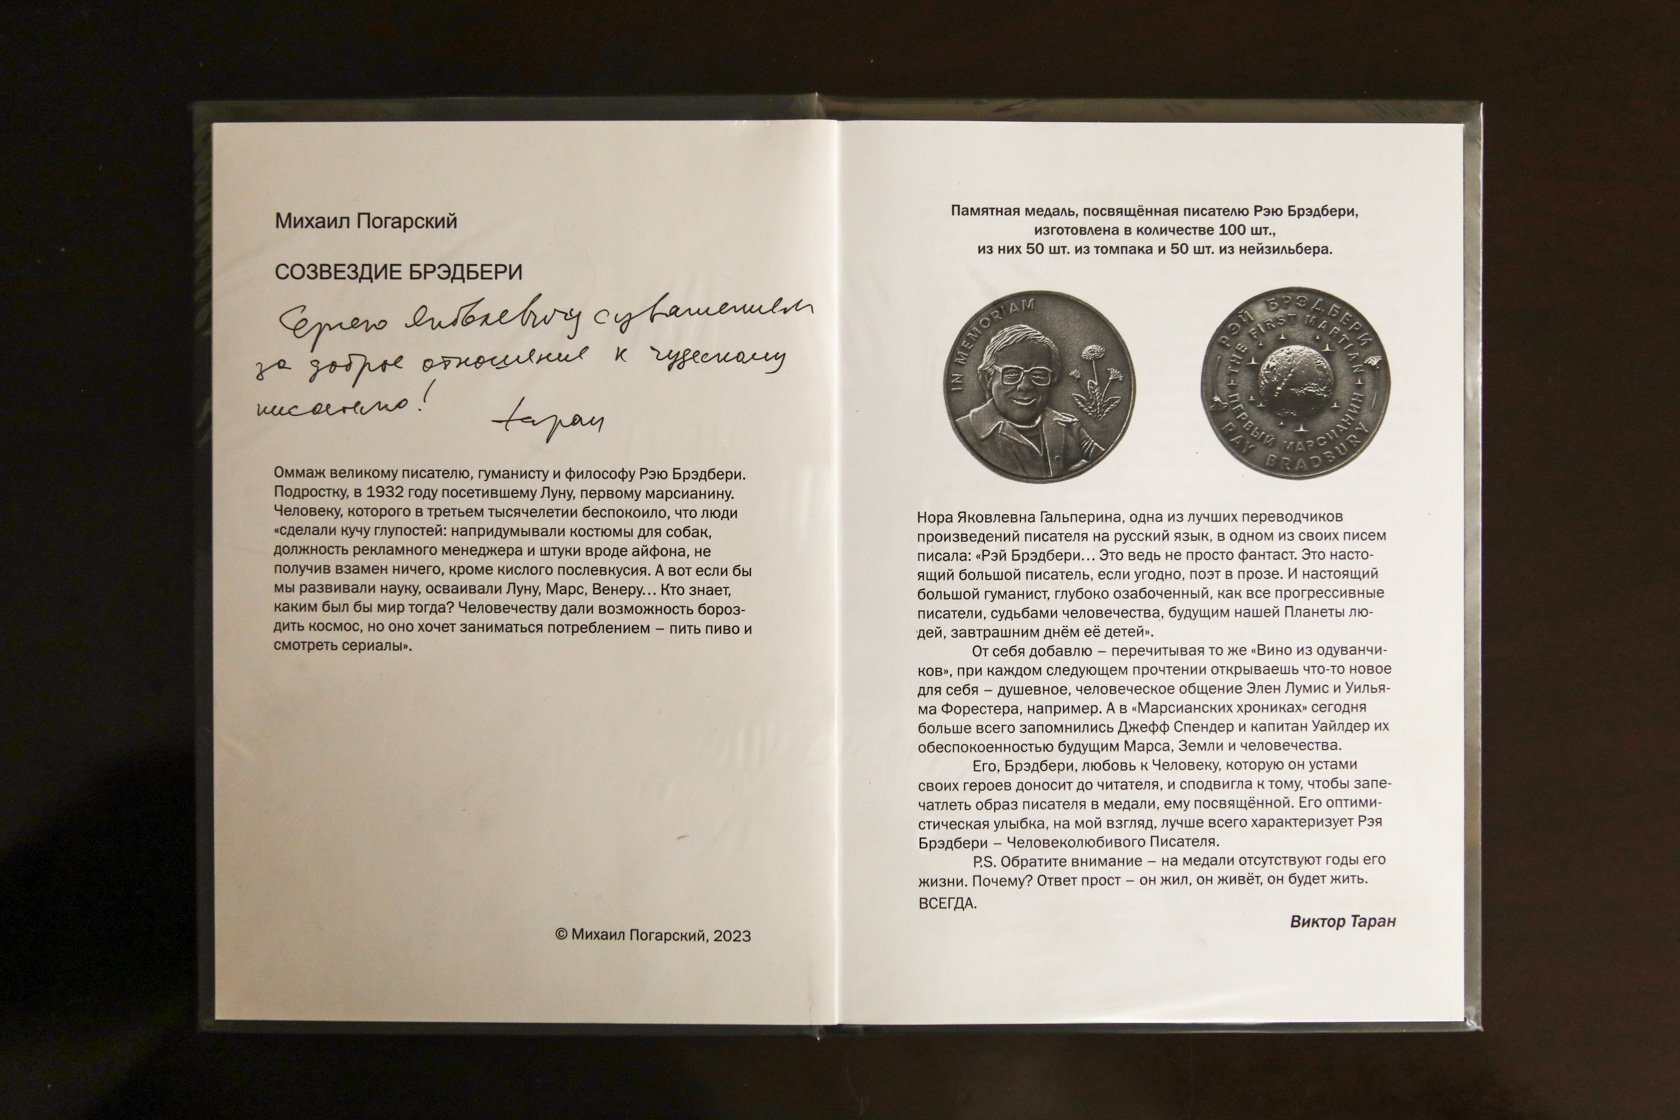 Михаил Погарский
СОЗВЕЗДИЕ БРЭДБЕРИ
Сергею Яковлевичу с уважением
за доброе отношение к чудесному
писателю!
Таран
Оммаж великому писателю, гуманисту и философу Рэю Брэдбери.
Подростку, в 1932 году посетившему Луну, первому марсианину.
Человеку, которого в третьем тысячелетии беспокоило, что люди
«сделали кучу глупостей: напридумывали костюмы для собак,
должность рекламного менеджера и штуки вроде айфона, не
получив взамен ничего, кроме кислого послевкусия. А вот если бы
мы развивали науку, осваивали Луну, Марс, Венеру... Кто знает,
каким был бы мир тогда? Человечеству дали возможность бороз-
дить космос, но оно хочет заниматься потреблением – пить пиво и
смотреть сериалы».
© Михаил Погарский, 2023
Памятная медаль, посвящённая писателю Рэю Брэдбери,
изготовлена в количестве 100 шт.,
из них 50 шт. из томпака и 50 шт. из нейзильбера.
IN MEMORIAM
РЭЙ БРЭДБЕРИ
THE FIRST MARTIAN
ПЕРВЫЙ МАРСИАНИН
RAY BRADBURY
Нора Яковлевна Гальперина, одна из лучших переводчиков
произведений писателя на русский язык, в одном из своих писем
писала: «Рэй Брэдбери... Это ведь не просто фантаст. Это насто-
ящий большой писатель, если угодно, поэт в прозе. И настоящий
большой гуманист, глубоко озабоченный, как все прогрессивные
писатели, судьбами человечества, будущим нашей Планеты лю-
дей, завтрашним днём её детей».
От себя добавлю – перечитывая то же «Вино из одуванчи-
ков», при каждом следующем прочтении открываешь что-то новое
для себя – душевное, человеческое общение Элен Лумис и Уилья-
ма Форестера, например. А в «Марсианских хрониках» сегодня
больше всего запомнились Джефф Спендер и капитан Уайлдер их
обеспокоенностью будущим Марса, Земли и человечества.
Его, Брэдбери, любовь к Человеку, которую он устами
своих героев доносит до читателя, и сподвигла к тому, чтобы запе-
чатлеть образ писателя в медали, ему посвящённой. Его оптими-
стическая улыбка, на мой взгляд, лучше всего характеризует Рэя
Брэдбери – Человеколюбивого Писателя.
P.S. Обратите внимание – на медали отсутствуют годы его
жизни. Почему? Ответ прост – он жил, он живёт, он будет жить.
ВСЕГДА.
Виктор Таран